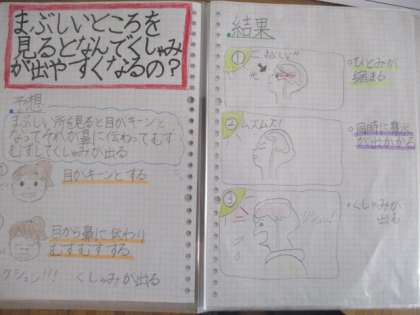 まぶしいところを
見るとなんでくしゃみ
が出やすくなるの?
予想
まぶしい所を見ると目がキーンと
なってそれが鼻に伝わってむず
むずしてくしゃみが出る
① 目がキーンとする
目から鼻に伝わり
むずむずする
クシュン!!! くしゃみが出る
結果
①
・ひとみが
縮まる
② ムズムズ!
・同時に鼻に
③
・くしゃみが
出る